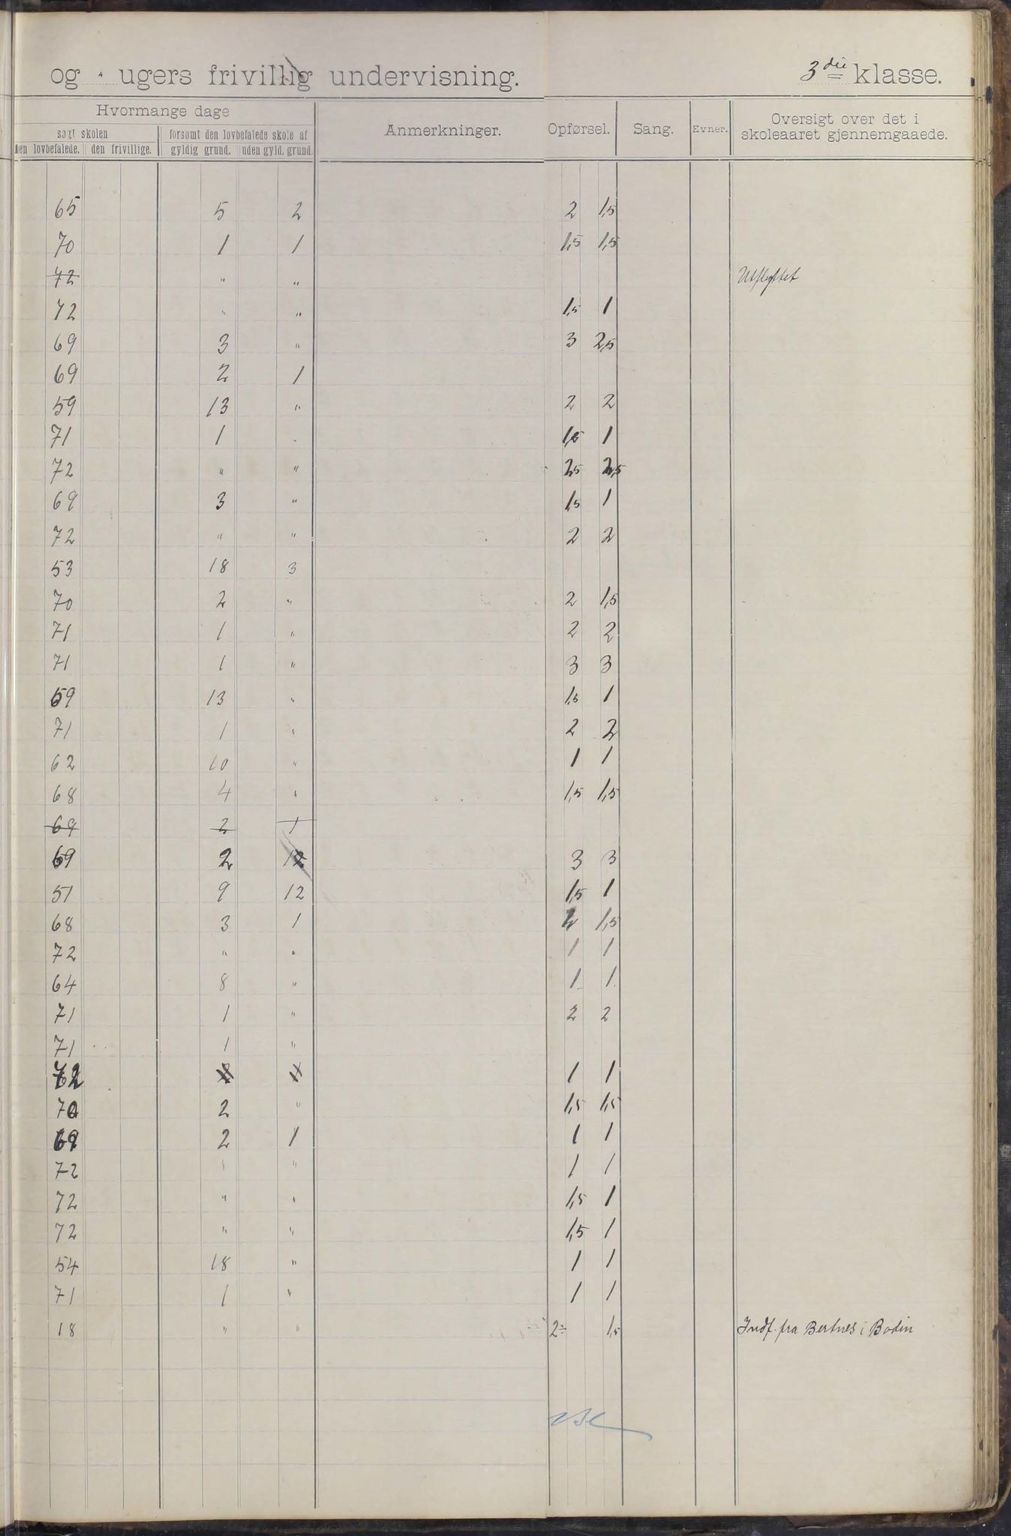 og " ugers frivillig undervisning. 3die klasse.
Hvormange dage
søgt skolen forsømt den lovbefalede skole af Anmerkninger. Opførsel. Sang. Evner. Oversigt over det i skoleaaret gjennemgaaede.
den lovbefalede. den frivillige. gyldig grund. uden gyld. grund.
65 5 2 2 1,5
70 1 1 1,5 1,5
72 " " Utflyttet
72 " " 1,5 1
69 3 " 3 2,5
69 2 1
59 13 " 2 2
71 1 " 1,5 1
72 " " 2,5 2,5
69 3 " 1,5 1
72 " " 2 2
53 18 3
70 2 " 2 1,5
71 1 " 2 2
71 1 " 3 3
59 13 " 1,5 1
71 1 " 2 2
62 10 " 1 1
68 4 " 1,5 1,5
69 2 1
69 2 12 3 3
51 9 12 1,5 1
68 3 1 2 1,5
72 " " 1 1
64 8 " 1 1
71 1 " 2 2
71 1 "
72 " 1 1
70 2 " 1,5 1,5
69 2 1 1 1
72 " " 1 1
72 " " 1,5 1
72 " " 1,5 1
54 18 " 1 1
71 1 " 1 1
18 " " 2 1,5 Indf. fra Bertnes i Bodin